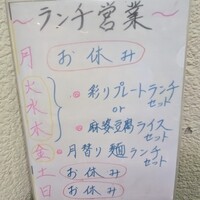 〜ランチ営業〜
月 お休み
火 ・彩りプレートランチセット
水 or
木 麻婆豆腐ライスセット
金 ・月替り麺ランチセット
土 お休み
日 お休み